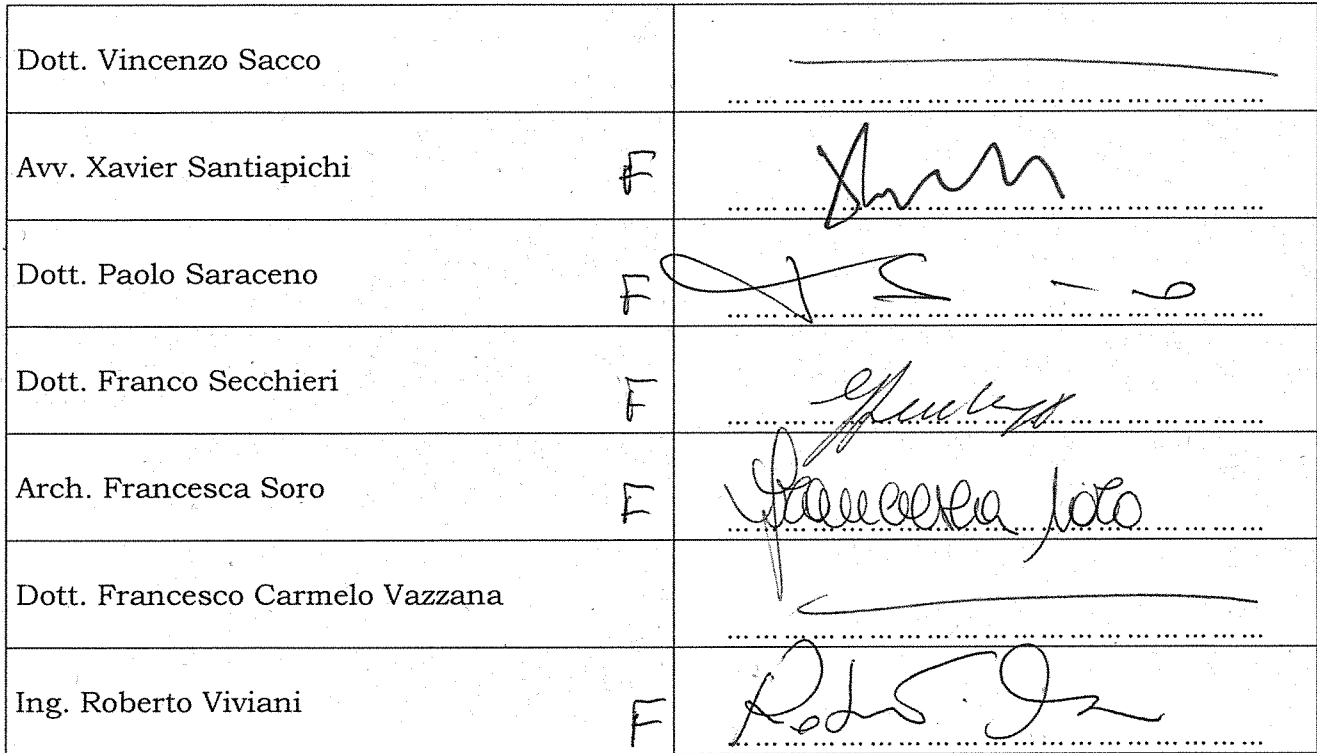 Dott. Vincenzo Sacco
Avv. Xavier Santiapichi F
Dott. Paolo Saraceno F
Dott. Franco Secchieri F
Arch. Francesca Soro F Francesca Soro
Dott. Francesco Carmelo Vazzana
Ing. Roberto Viviani F